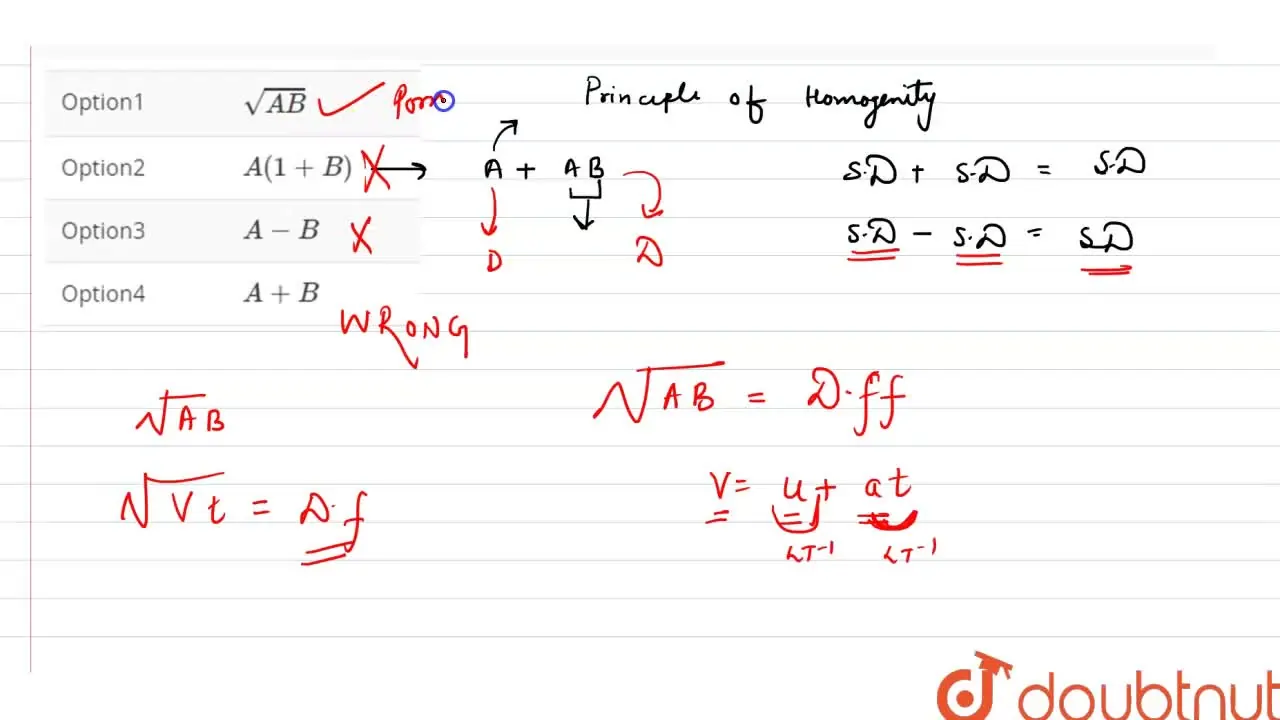 Option1 √AB ✓ Porr
Principle of Homogenity
Option2 A(1 + B) X → A + AB
S.D + S.D = S.D
Option3 A − B X
D D
S.D − S.D = S.D
Option4 A + B
WRONG
√AB
√AB = D.ff
√Vt = D.f
V = u + at
LT⁻¹ LT⁻¹
doubtnut